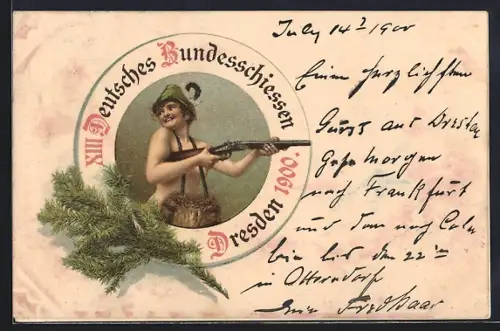 XIII Deutsches Bundesschiessen
Dresden 1900.
July 14ᵗ 1900
Einen herzlichsten
Gruss aus Dresden
Gehe morgen
nach Frankfurt
und dann nach Coln
bin bis den 22ten
in Otterndorf
Fred Haar